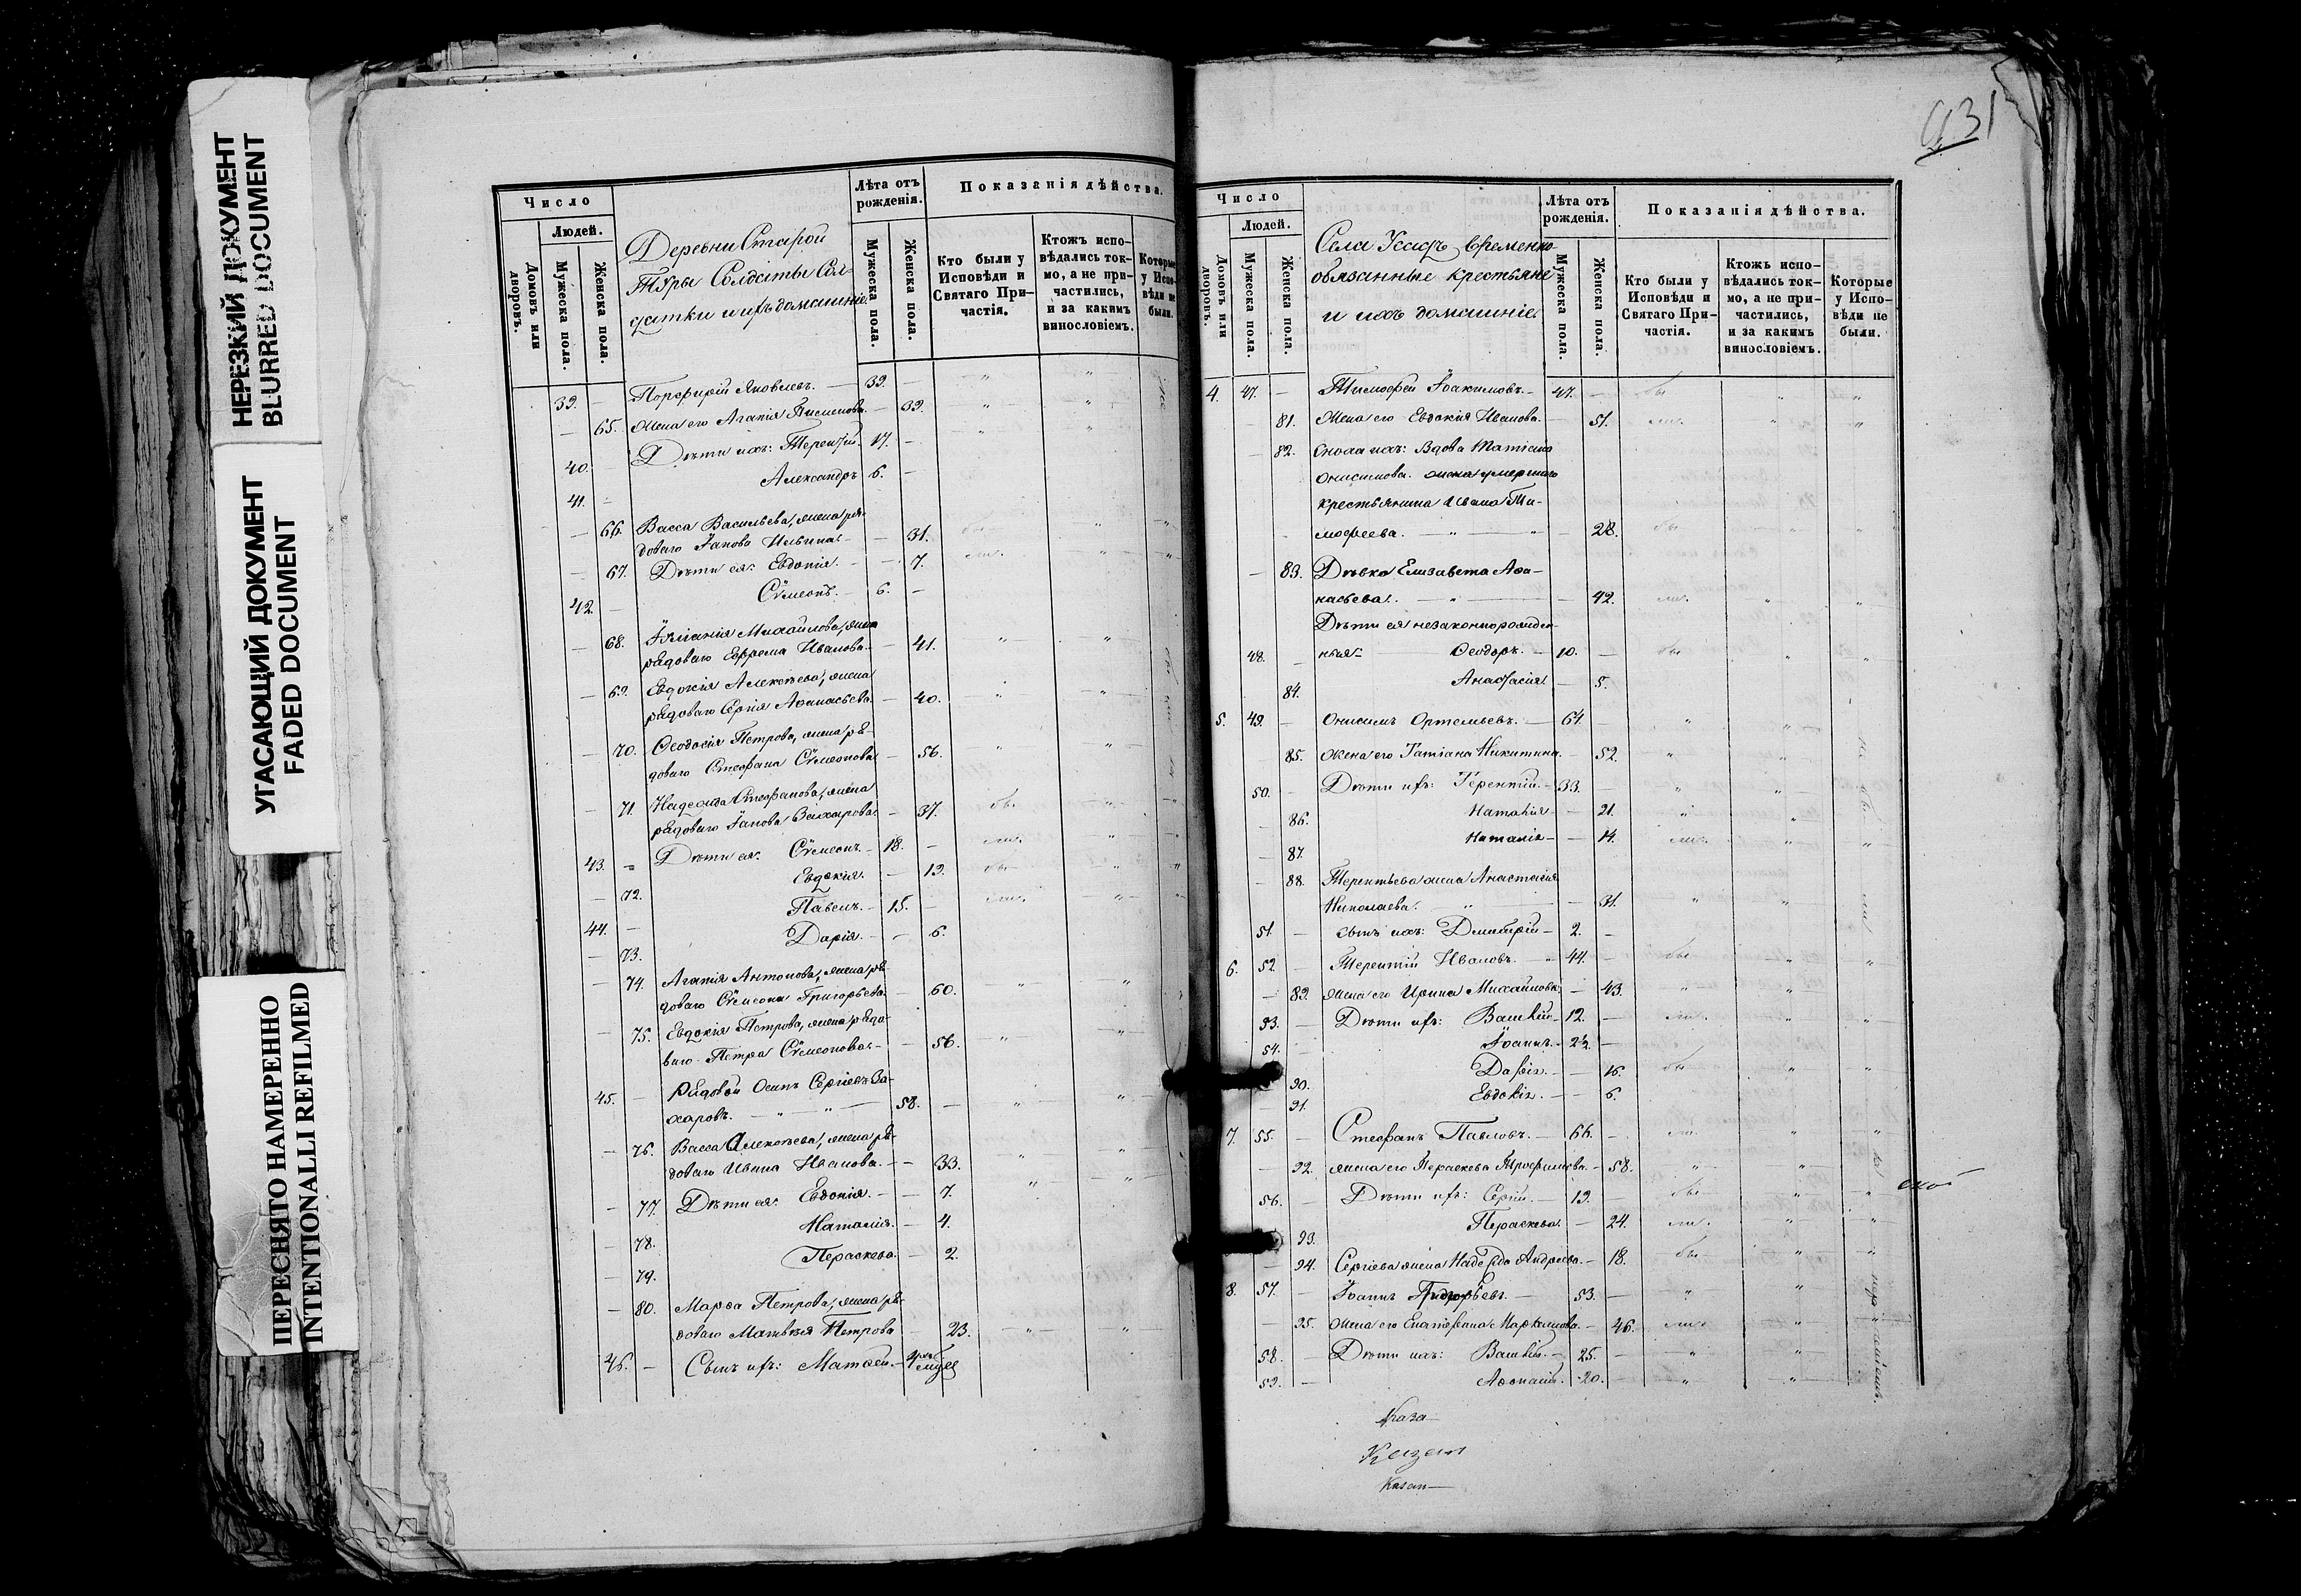 НЕРЕЗКИЙ ДОКУМЕНТ
BLURRED DOCUMENT
УГАСАЮЩИЙ ДОКУМЕНТ
FADED DOCUMENT
ПЕРЕСНЯТО НАМЕРЕННО
INTENTIONALLI REFILMED
Число
Людей.
Домовъ или дворовъ.
Мужеска пола.
Женска пола.
Деревни Старой
Туры Солдаты Сол-
датки и ихъ домашніе
Лѣта отъ рожденія.
Мужеска пола.
Женска пола.
Показанія дѣйства.
Кто были у Исповѣди и Святаго При-частія.
Ктожъ испо-вѣдались ток-мо, а не при-частились, и за какимъ винословіемъ.
Которые у Испо-вѣди не были.
39. — Порфирій Яковлевъ. — 39. —
— 65. Жена его Агапія — 39.
40. Дѣти ихъ: Терентій. 17. —
41. — Александръ 6. —
— 66. Васса Васильева, жена ря-
доваго Іакова Ильина. — 31.
— 67. Дѣти ея: Евдокія. — 7.
42. — Сѵмеонъ. — 6. —
— 68. Михайлова, жена
рядоваго Ефрема Иванова. — 41.
— 69. Евдокія Алексѣева, жена
рядоваго Сергія Аѳанасьева. — 40.
— 70. Ѳеодосія Петрова, жена ря-
доваго Стефана Сѵмеонова — 56.
— 71. Надежда Стефанова, жена
рядоваго Іакова Захарова. — 37.
43. — Дѣти ея: Сѵмеонъ. — 18. —
— 72. Евдокія. — 19.
44. — Павелъ. — 15. —
— 73. Дарія. — — 6.
— 74. Агапія Антонова, жена ря-
доваго Сѵмеона Григорьева. — 60.
— 75. Евдокія Петрова, жена рядо-
ваго Петра Сѵмеонова. — — 56.
45. — Рядовой Осипъ Сергіевъ За-
харовъ. — 58. —
— 76. Васса Алексѣева, жена ря-
доваго Ивана Иванова. — — 33.
— 77. Дѣти ея: Евдокія. — — 7.
— 78. Наталія. — 4.
— 79. Параскева. — 2.
— 80. Марѳа Петрова, жена ря-
доваго Матвѣя Петрова — 23.
46. — Сынъ ихъ: Матвей. —
431
Число
Людей.
Домовъ или дворовъ.
Мужеска пола.
Женска пола.
Села Усадъ временно-
обязанные крестьяне
и ихъ домашніе.
Лѣта отъ рожденія.
Мужеска пола.
Женска пола.
Показанія дѣйства.
Кто были у Исповѣди и Святаго При-частія.
Ктожъ испо-вѣдались ток-мо, а не при-частились, и за какимъ винословіемъ.
Которые у Испо-вѣди не были.
4. 47. — Тимофей Іоакимовъ. — 47. —
81. Жена его Евдокія Иванова. — 51.
— 82. Сноха ихъ: Вдова Татіана
Онисимова. жена умершаго
крестьянина Ивана Ти-
мофеева. — 28.
— 83. Дѣвка Елизавета Аѳа-
насьева. — 42.
Дѣти ея незаконнорожден-
48. — ныя: Ѳеодоръ. — 10. —
84. Анастасія — 5.
5. 49. — Онисимъ Ортемьевъ. — 64. —
85. Жена его Татіана Никитина. — 52.
50. — Дѣти ихъ: Терентій. — 33. —
— 86. Наталія — — 21.
— 87. Наталія — — 14.
— 88. Терентьева жена Анастасія
Николаева. — 31.
51. — Сынъ ихъ: Димитрій — 2. —
6. 52. — Терентій Ивановъ. — 44. —
— 89. Жена его Ирина Михайлова — 43.
53. — Дѣти ихъ: — 12. —
54. — Іоаннъ. —
90. Дарія. — — 16.
— 91. Евдокія. — — 6.
7. 55. — Стефанъ Павловъ. — 66. —
— 92. жена его Параскева Трофимова. — 58.
56. — Дѣти ихъ: Сергій. — 19. —
93. Параскева. — 24.
— 94. Сергіева жена Надежда Андреева. — 18.
8. 57. — Іоаннъ Григорьевъ. — 53. —
— 95. Жена его Екатерина — 46.
58. — Дѣти ихъ: — 25. —
59. — Аѳонасій. — 20. —
Каза—
Казан
Казан—